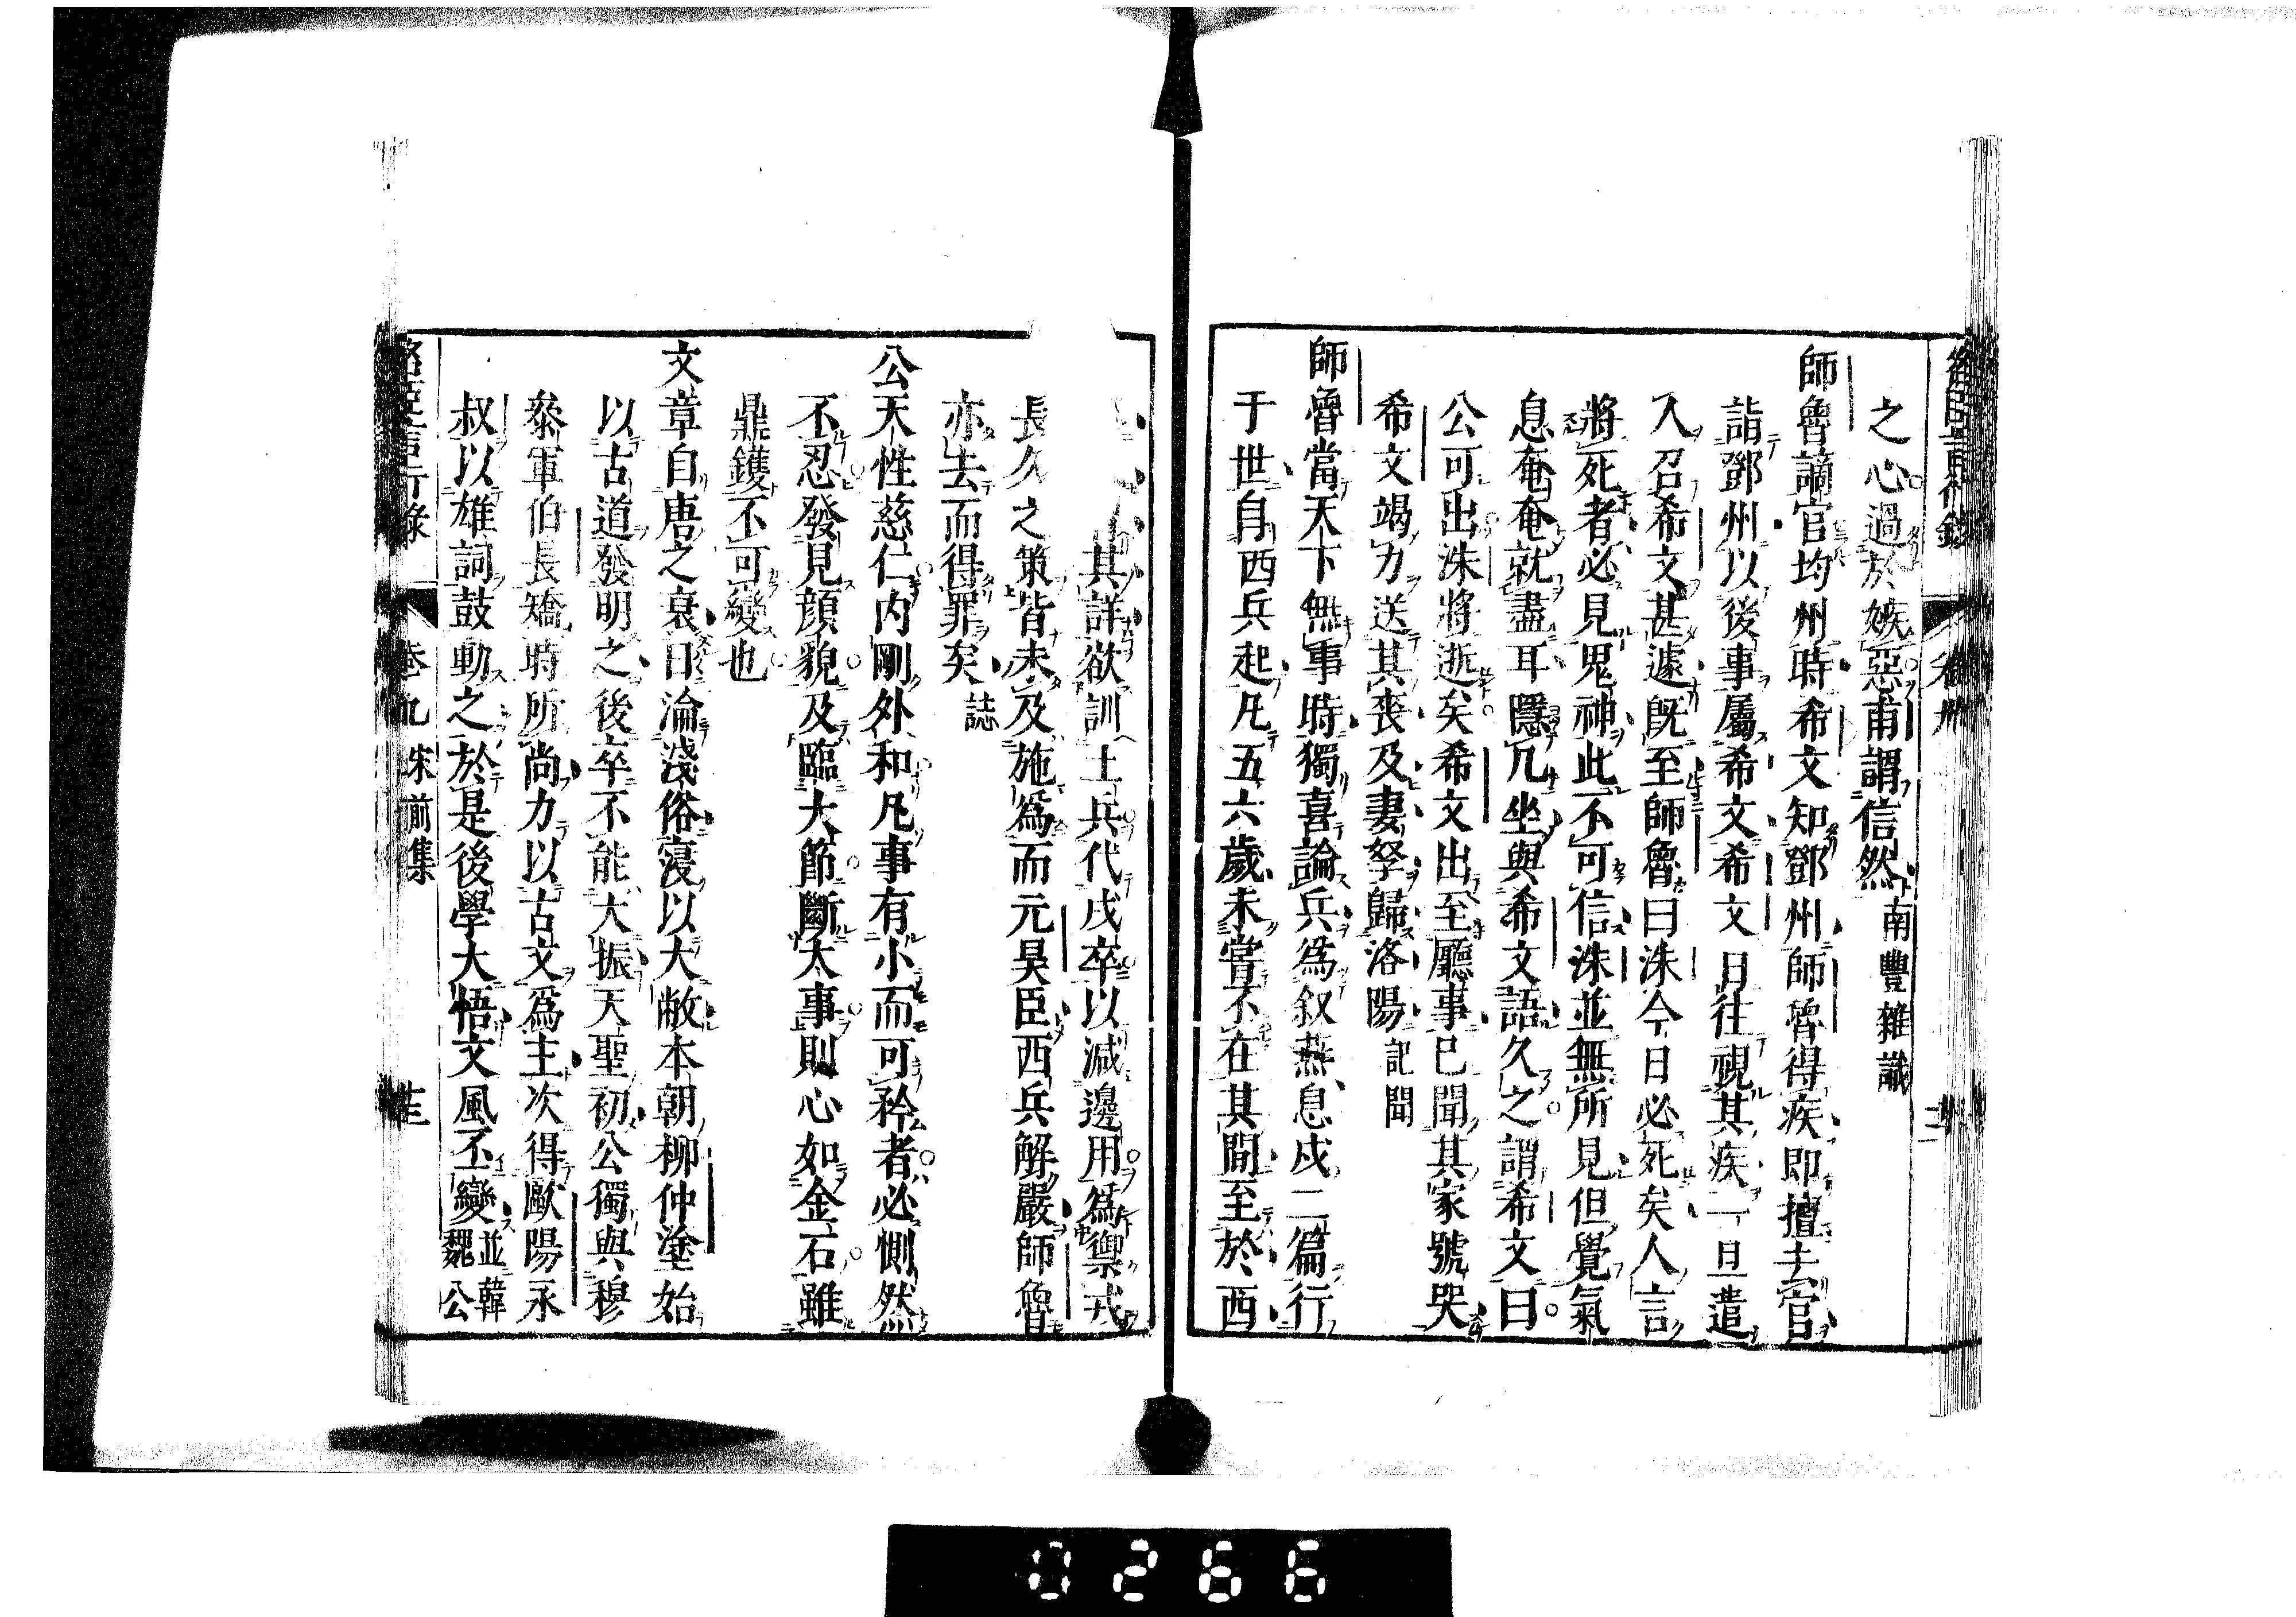 之心過於嫉惡甫謂信然南豐雜識
師魯謫官均州時希文知鄧州師魯得疾即擅去官
詣鄧州以後事屬希文希文日往視其疾一旦遣
人召希文甚遽既至師魯曰洙今日必死矣人言
將死者必見鬼神此不可信洙並無所見但覺氣
息奄奄就盡耳隱几坐與希文語久之謂希文曰
公可出洙將逝矣希文出至廳事已聞其家號哭
希文竭力送其喪及妻孥歸洛陽記聞
師魯當天下無事時獨喜論兵爲叙燕息戍二篇行
于世自西兵起凡五六歲未嘗不在其間至於西
其詳欲訓土兵代戍卒以減邊用爲禦戎
長久之策皆未及施爲而元昊臣西兵解嚴師魯
亦去而得罪矣誌
公天性慈仁内剛外和凡事有小而可矜者必惻然
不忍發見顏貌及臨大節斷大事則心如金石雖
鼎鑊不可變也
文章自唐之衰日淪淺俗寖以大敝本朝柳仲塗始
以古道發明之後卒不能大振天聖初公獨與穆
叅軍伯長矯時所尚力以古文爲主次得歐陽永
叔以雄詞鼓動之於是後學大悟文風丕變並韓魏公
名臣言行錄 卷九 宋前集
0266